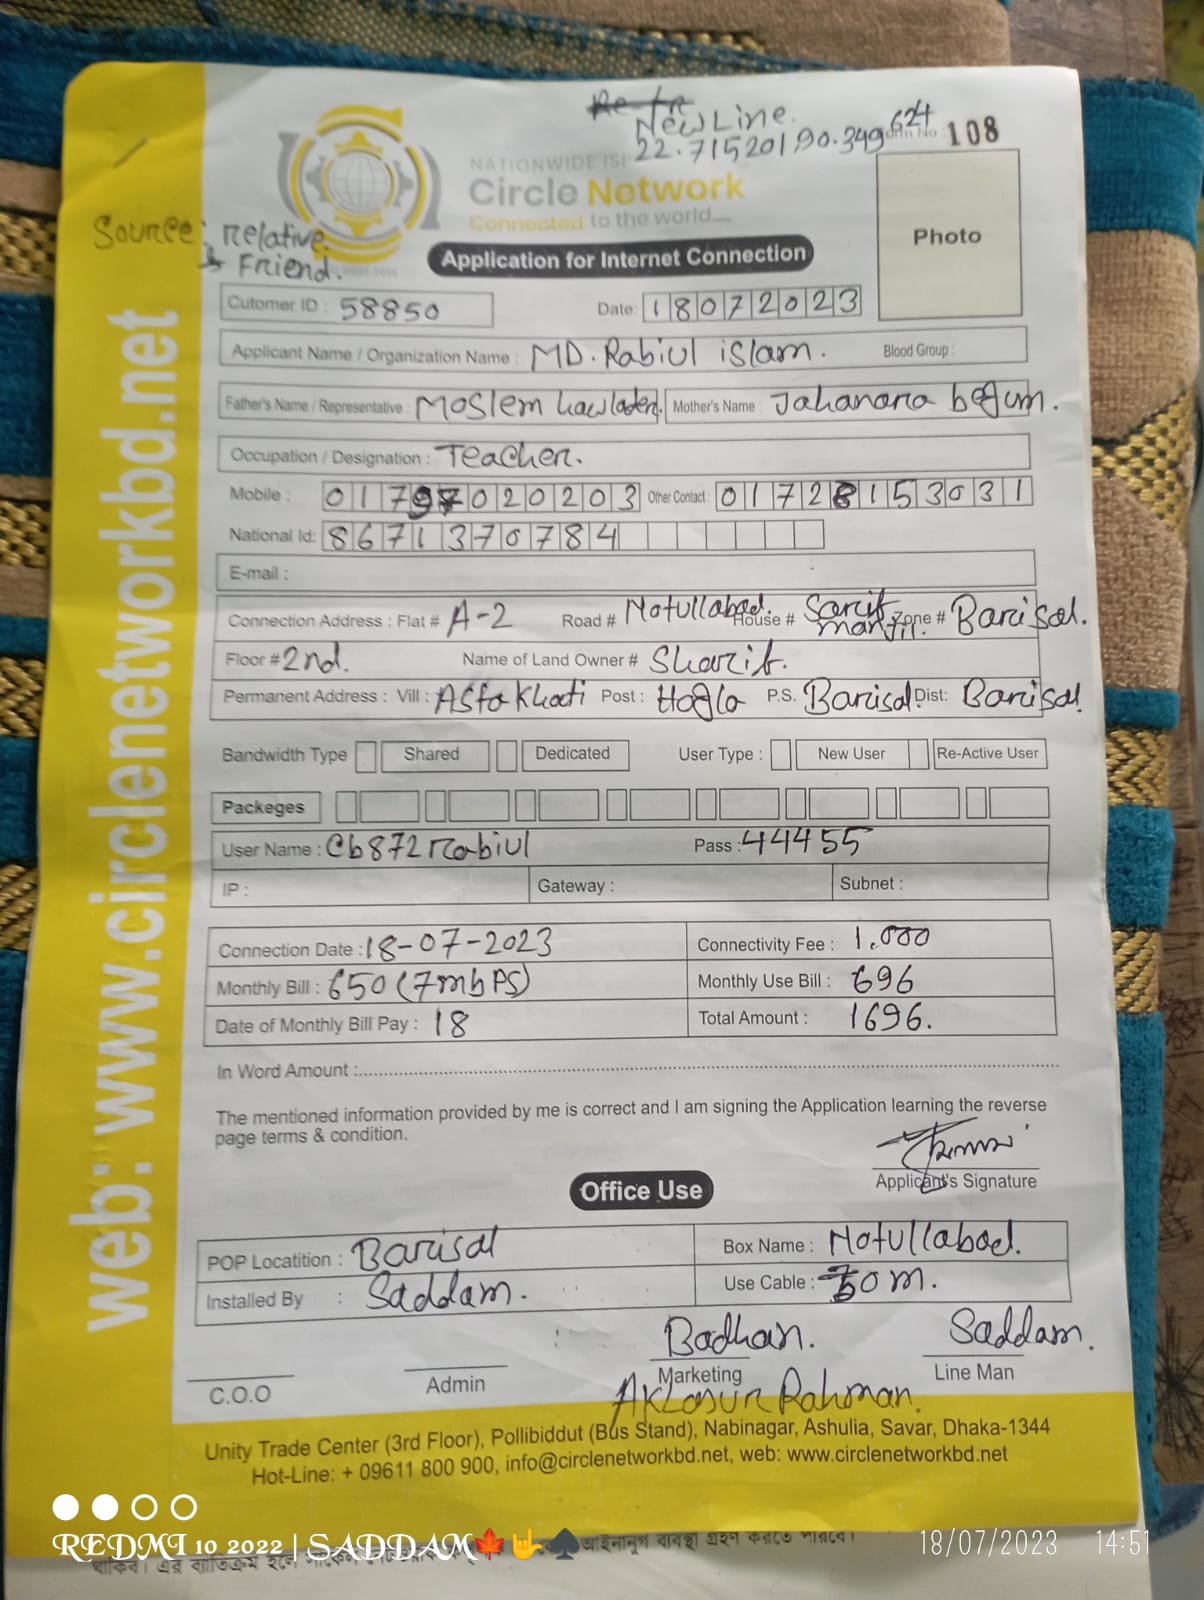 New Line.
22.715201,90.349624
Form No 108
NATIONWIDE ISP
Circle Network
Connected to the world....
Source: relative
& Friend.
Application for Internet Connection
Photo
Cutomer ID : 58850 Date: 18072023
Applicant Name / Organization Name : MD. Rabiul islam. Blood Group :
Father's Name / Representative : Moslem howlader. Mother's Name : Jahanara begum.
Occupation / Designation : Teacher.
Mobile : 01797020203 Other Contact : 01728153031
National Id: 8671370784
E-mail :
Connection Address : Flat # A-2 Road # Notullabad. House # Sarif manjil. Zone # Barisal.
Floor # 2nd. Name of Land Owner # Sharif.
Permanent Address : Vill : Asfa Khati Post : Hogla P.S. Barisal Dist: Barisal
Bandwidth Type Shared Dedicated User Type : New User Re-Active User
Packeges
User Name : Cb872rabiul Pass : 44455
IP : Gateway : Subnet :
Connection Date : 18-07-2023 Connectivity Fee : 1,000
Monthly Bill : 650 (7mbPS) Monthly Use Bill : 696
Date of Monthly Bill Pay : 18 Total Amount : 1696.
In Word Amount :
The mentioned information provided by me is correct and I am signing the Application learning the reverse
page terms & condition.
Applicant's Signature
Office Use
POP Locatition : Barisal Box Name : Notullabad.
Installed By : Saddam. Use Cable : 50m.
Badhan. Saddam.
C.O.O Admin Marketing Line Man
Rahman.
Unity Trade Center (3rd Floor), Pollibiddut (Bus Stand), Nabinagar, Ashulia, Savar, Dhaka-1344
Hot-Line: + 09611 800 900, info@circlenetworkbd.net, web: www.circlenetworkbd.net
web: www.circlenetworkbd.net
REDMI 10 2022 | SADDAM
আইনানুগ ব্যবস্থা গ্রহণ করতে পারবে।
থাকিব। এর ব্যতিক্রম হলে
18/07/2023 14:51